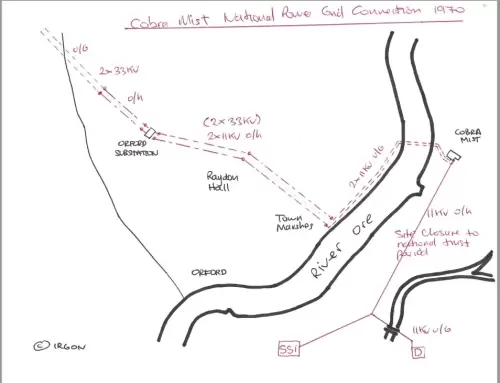 Cobra Mist National Power Grid Connection 1970
U/G
2x33KV
O/H
ORFORD
SUBSTATION
(2x33KV)
2x11KV O/H
Raydon
Hall
Town
Marshes
2x11KV U/G
COBRA
MIST
11KV O/H
Site Closure to
national trust
period
River Ore
ORFORD
11KV U/G
SS1
D
© IRGON